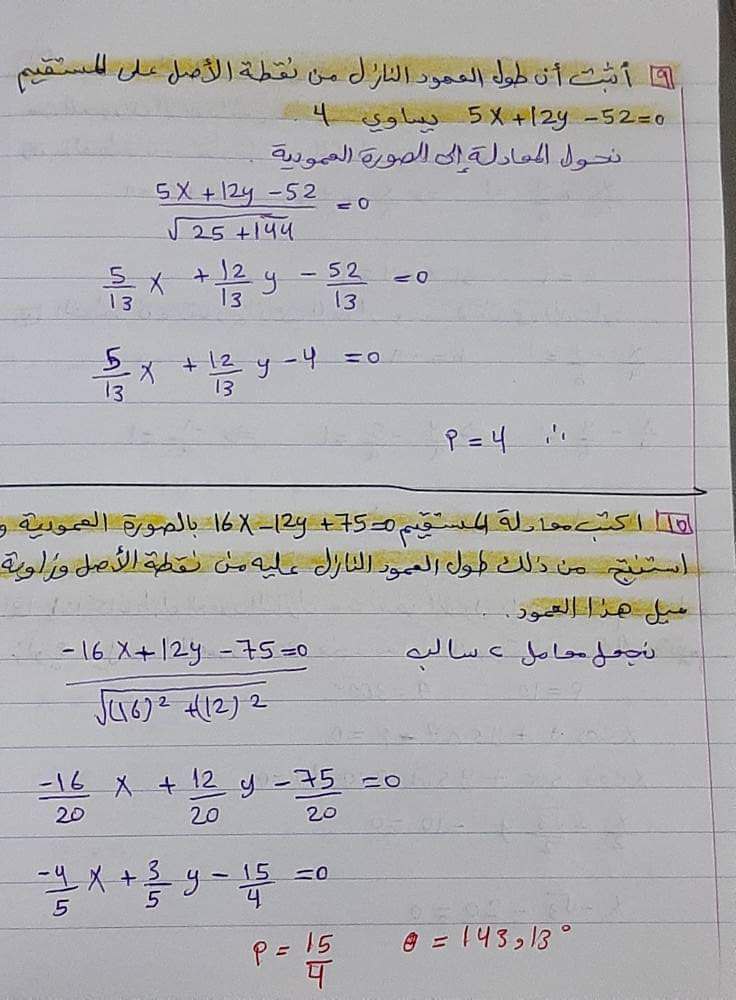 9 أثبت أن طول العمود النازل من نقطة الأصل على المستقيم
5x+12y-52=0 يساوي 4.
نحول المعادلة إلى الصورة العمودية.
(5x+12y-52)/√(25+144) =0
5/13 x + 12/13 y - 52/13 =0
5/13 x + 12/13 y - 4 =0
∴ P = 4
10 اكتب معادلة المستقيم 16x-12y+75=0 بالصورة العمودية و
استنتج من ذلك طول العمود النازل عليه من نقطة الأصل وزاوية
ميل هذا العمود.
نجعل معامل c سالب
(-16x+12y-75=0)/√((16)²+(12)²)
-16/20 x + 12/20 y - 75/20 =0
-4/5 x + 3/5 y - 15/4 =0
P = 15/4 θ = 143,13°